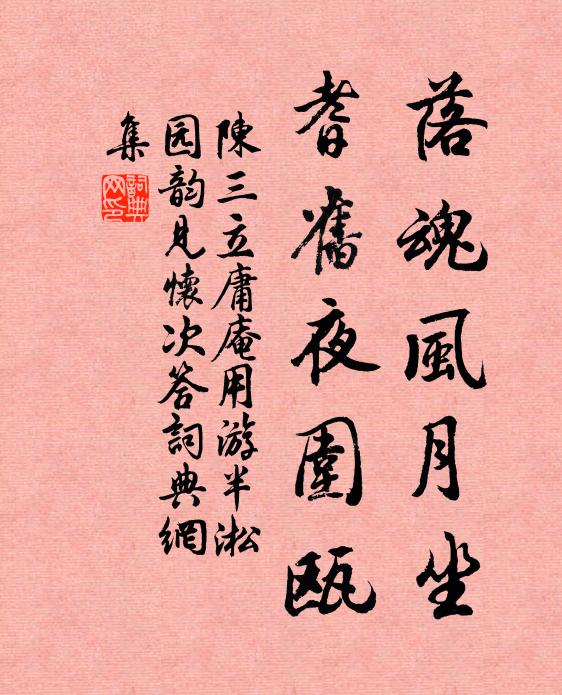 落魂風月坐
耆舊夜圍甌
陳三立庸庵用游半淞
园韵見懷次答詞典網
集
詞典
网印